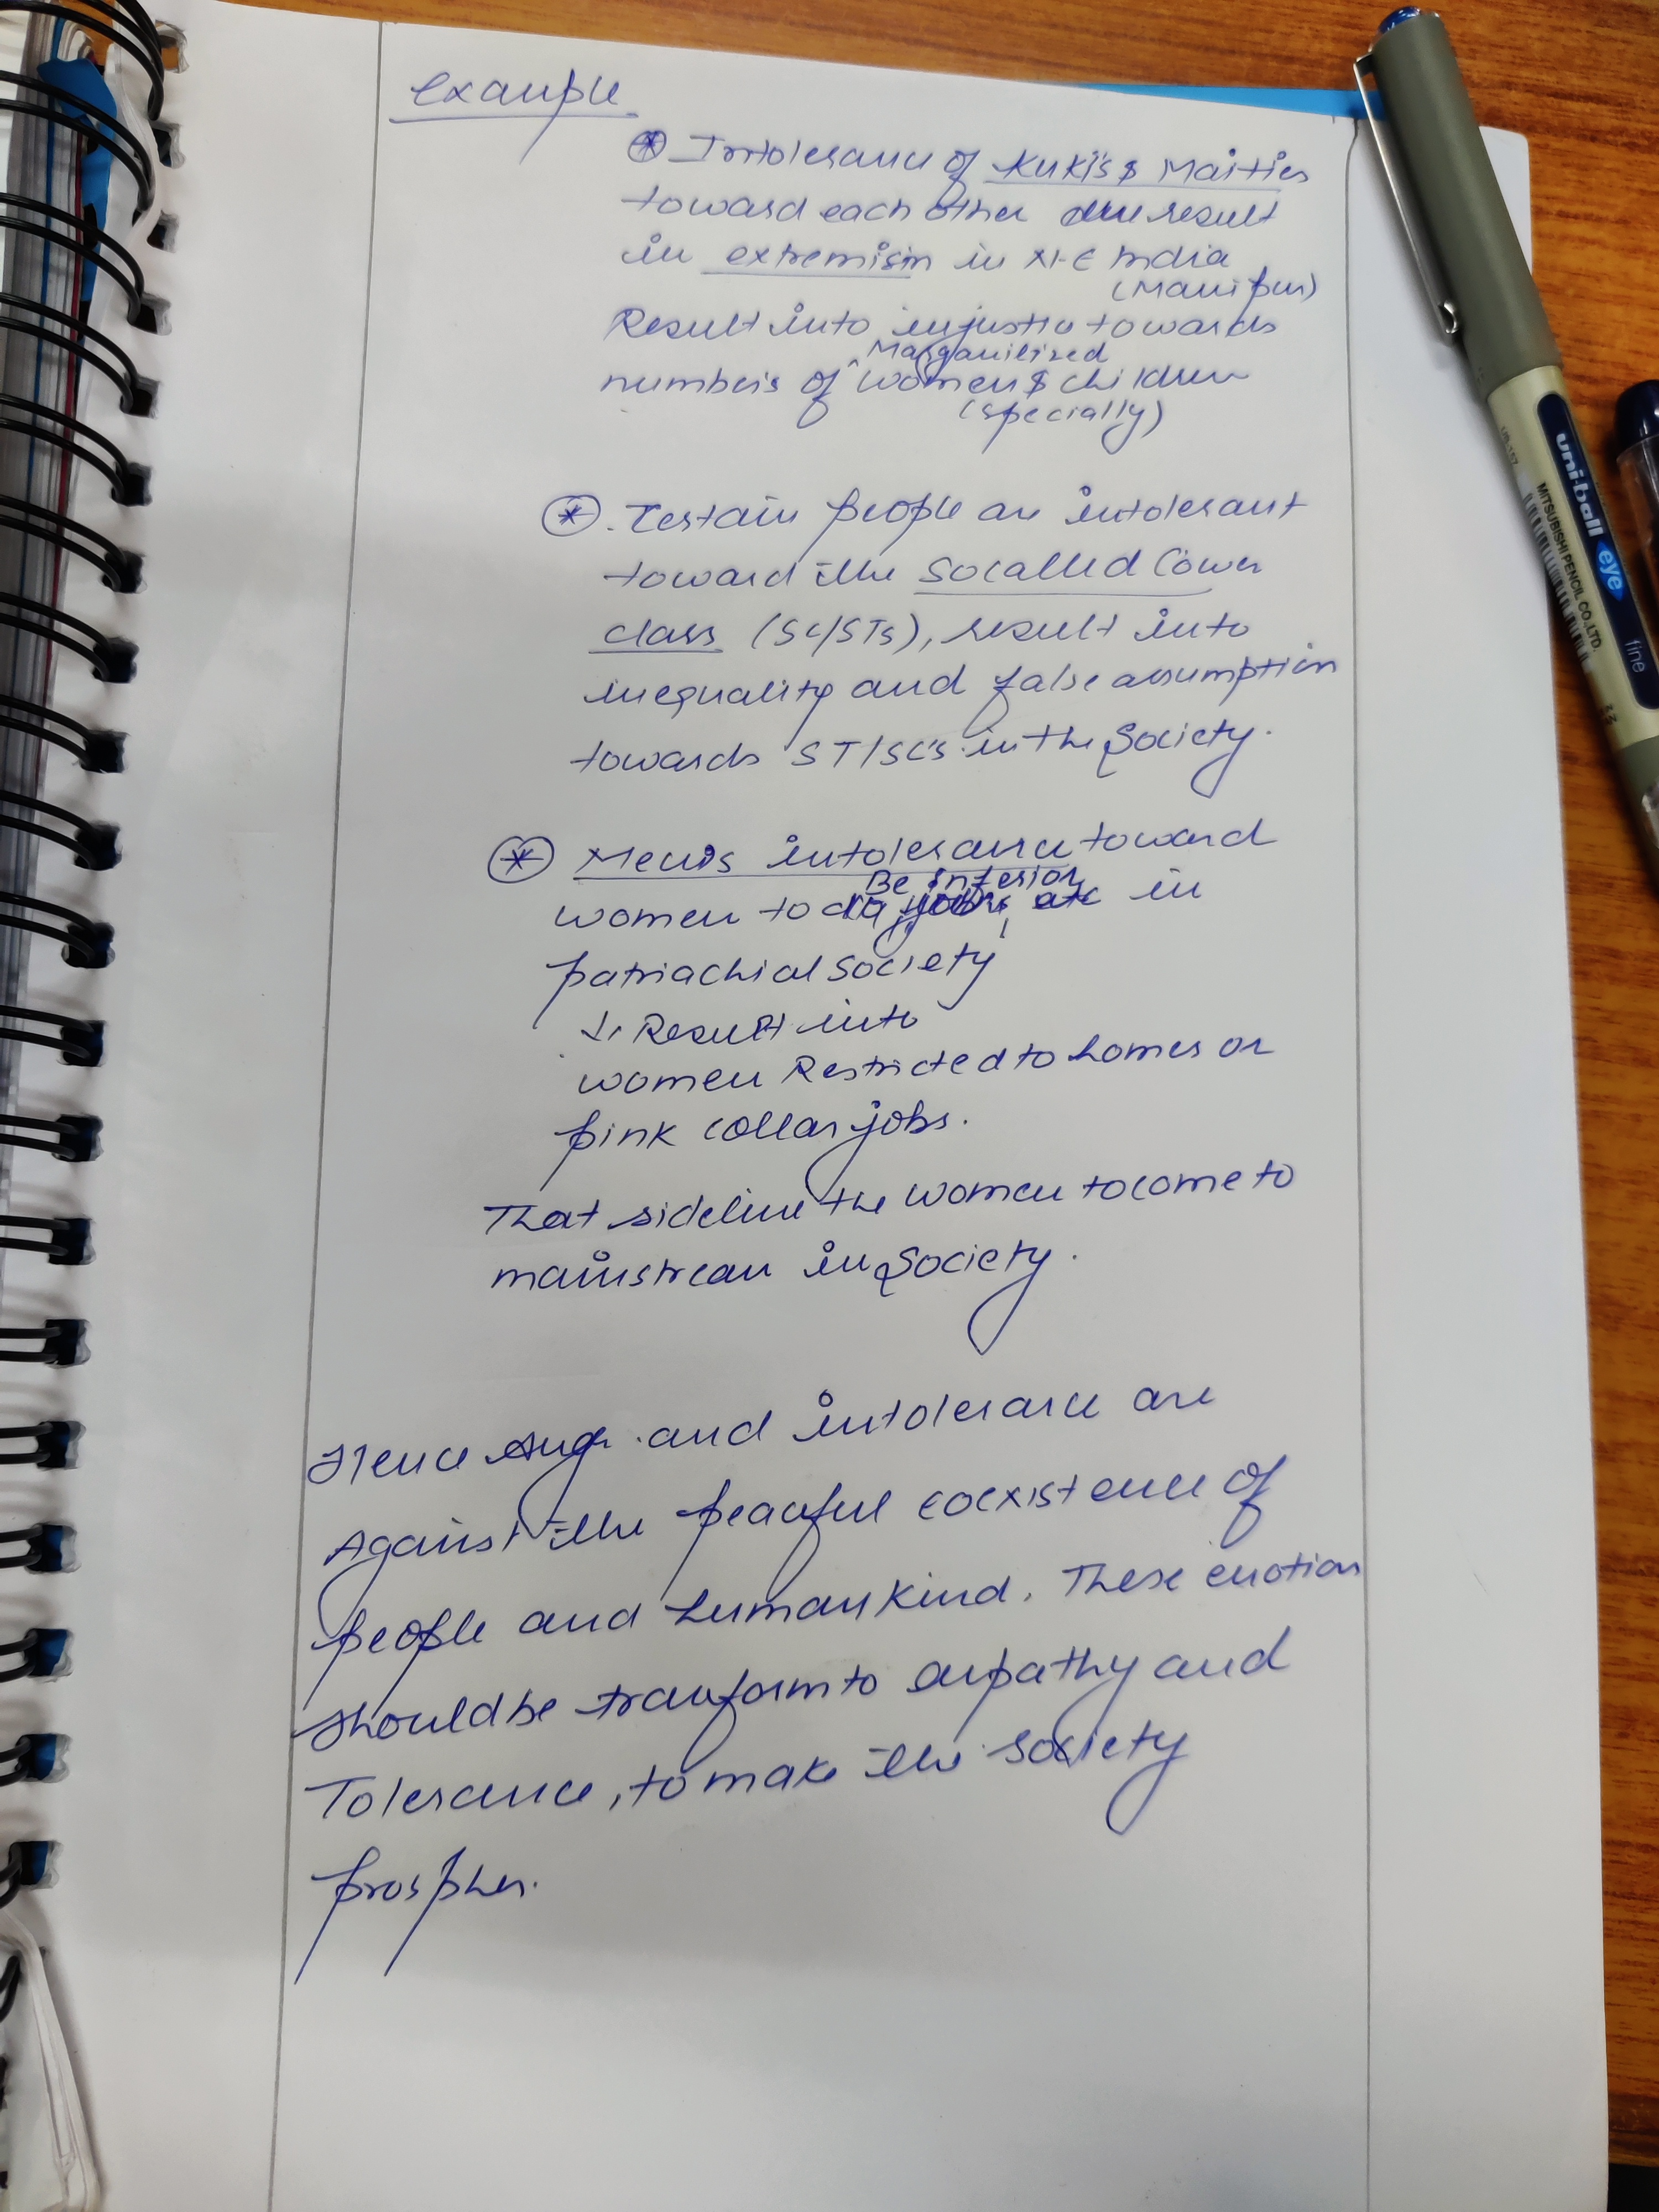 example
⊛ Intolerance of Kuki's & Maities
toward each other result
in extremism in N-E India
(Manipur)
Result into injustice towards
Marganilized
numbers of ^ women & children
(specially)
⊛ . Certain people are intolerant
toward the socalled lower
class (SC/STs), result into
inequality and false assumption
towards ST/SC's in the Society.
⊛ Men's intolerance toward
Be inferior
women to in
patriachial society
↳ Result into
women Restricted to homes or
pink collar jobs.
That sideline the women to come to
mainstream in Society.
Hence Anger and intolerance are
Against the peaceful coexistence of
people and humankind. These emotion
should be tranform to empathy and
Tolerance, to make the society
prospher.
uni-ball eye fine
MITSUBISHI PENCIL CO., LTD.
UB-157